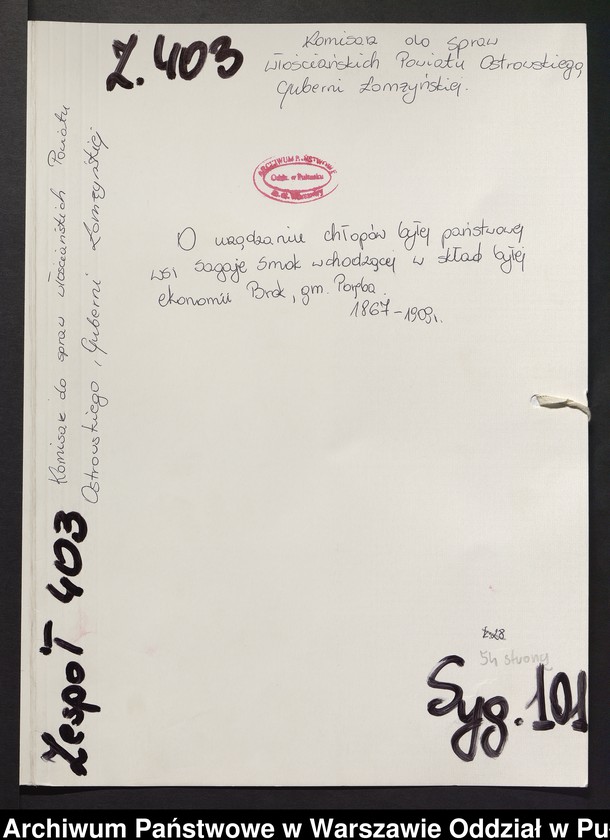 Z. 403
Komisarz do spraw
włościańskich Powiatu Ostrowskiego
Guberni Łomżyńskiej.
ARCHIWUM PAŃSTWOWE
Oddz. w Pułtusku
O urządzaniu chłopów byłej państwowej
wsi Sagaje Smok wchodzącej w skład byłej
ekonomii Brok, gm. Poręba.
1867-1909r.
Komisarz do spraw włościańskich Powiatu
Ostrowskiego, Guberni Łomżyńskiej
Zespół 403
54 strony
Syg. 101
Archiwum Państwowe w Warszawie Oddział w Pu